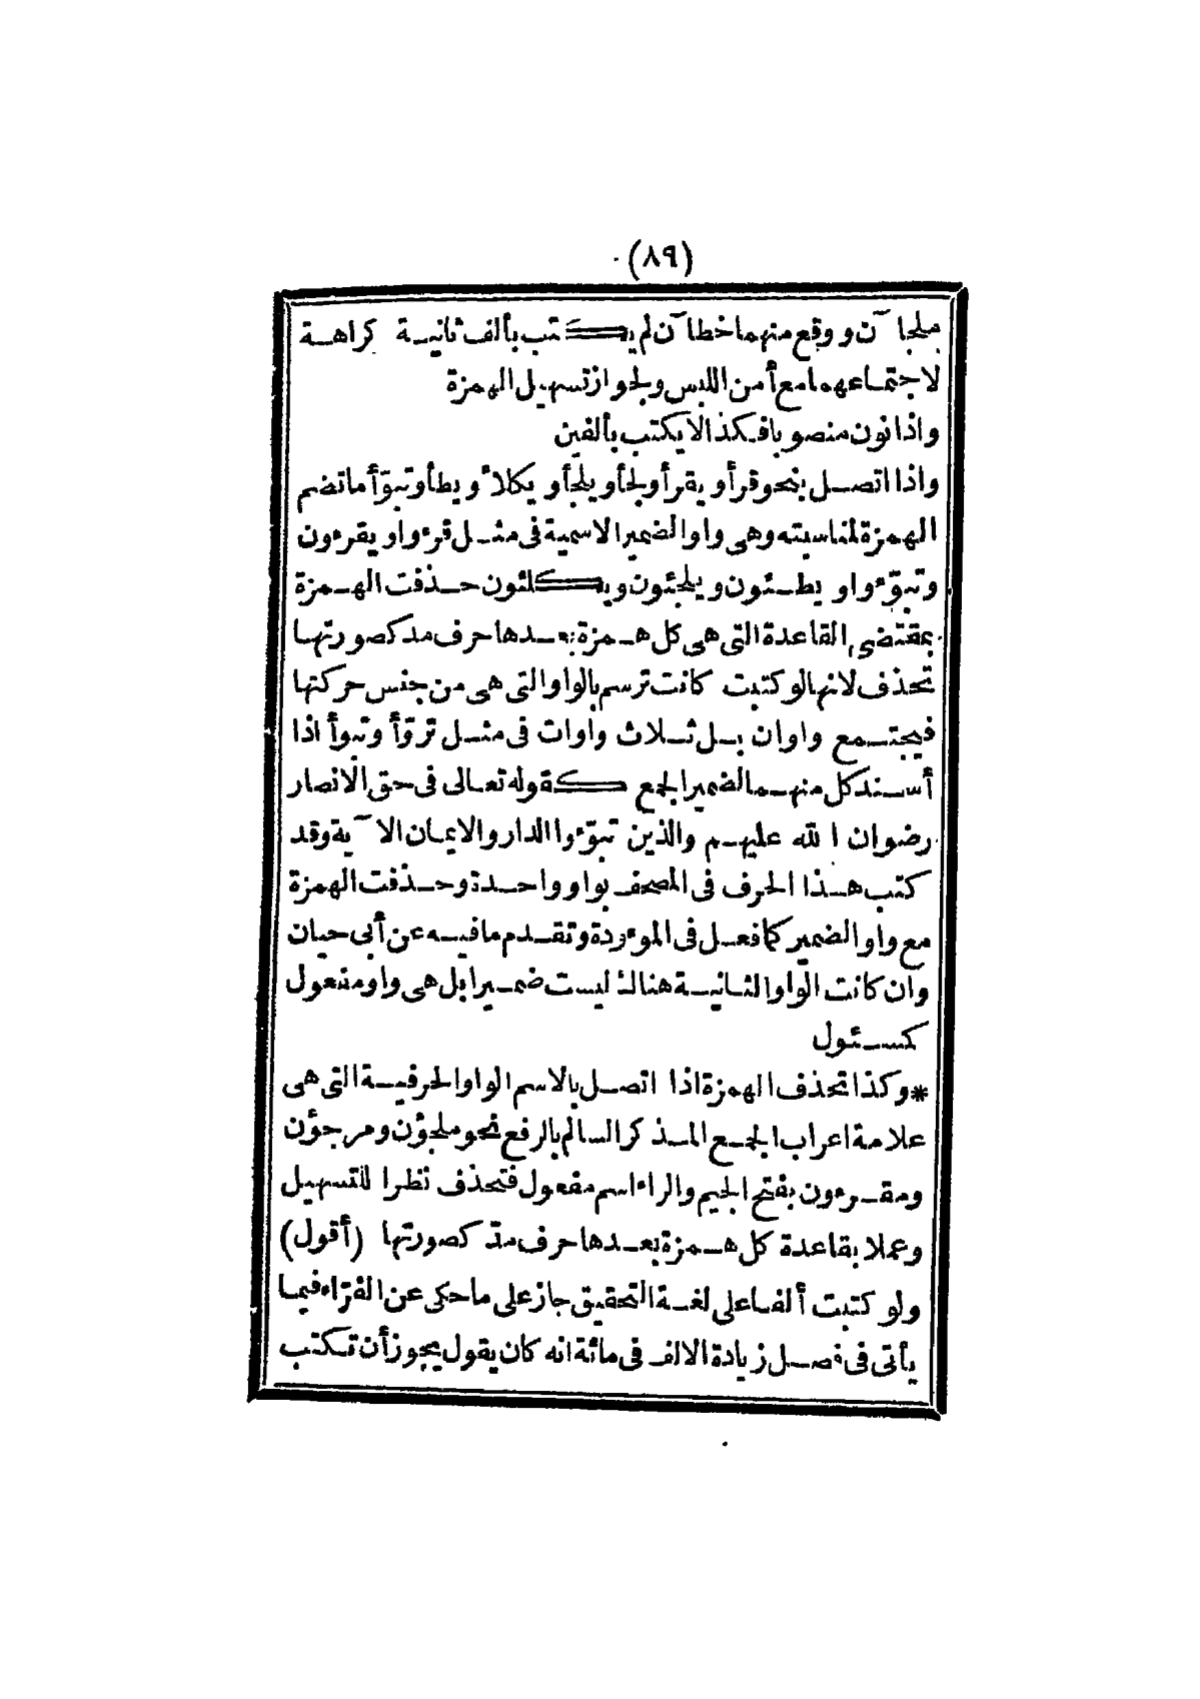 (٨٩)
ملجا آن ووقع منهما خطا آن لم يكتب بألف ثانية كراهة
لاجتماعهما مع أمن اللبس ولجواز تسهيل الهمزة
واذا نون منصوبا فكذا لا يكتب بألفين
واذا اتصل بنحو قرأ ويقرأ ولجأ ويلجأ ويكلأ ويطأ وتبوّأ ما تضم
الهمزة لمناسبته وهى واو الضمير الاسمية فى مثل قرءوا ويقرءون
وتبوّءوا ويطئون ويلجئون ويكلئون حذفت الهمزة
بمقتضى القاعدة التى هى كل همزة بعدها حرف مد كصورتها
تحذف لانها لو كتبت كانت ترسم بالواو التى هى من جنس حركتها
فيجتمع واوان بل ثلاث واوات فى مثل تروّأ وتبوأ اذا
أسند كل منهما لضمير الجمع كقوله تعالى فى حق الانصار
رضوان الله عليهم والذين تبوّءوا الدار والايمان الآية وقد
كتب هذا الحرف فى المصحف بواو واحدة وحذفت الهمزة
مع واو الضمير كما فعل فى الموءردة وتقدم ما فيه عن أبى حيان
وان كانت الواو الثانية هنالك ليست ضميرا بل هى واو مفعول
كمسئول
*وكذا تحذف الهمزة اذا اتصل بالاسم الواو الحرفية التى هى
علامة اعراب الجمع المذكر السالم بالرفع نحو ملجؤن ومرجؤن
ومقرءون بفتح الجيم والراء اسم مفعول فتحذف نظرا للتسهيل
وعملا بقاعدة كل همزة بعدها حرف مدّ كصورتها (أقول)
ولو كتبت ألفا على لغة التحقيق جاز على ما حكى عن الفرّاء فيما
يأتى فى فصل زيادة الالف فى مائة انه كان يقول يجوز أن تكتب